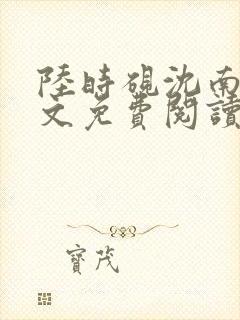 陸時硯沈南
文免費閱讀
寶茂